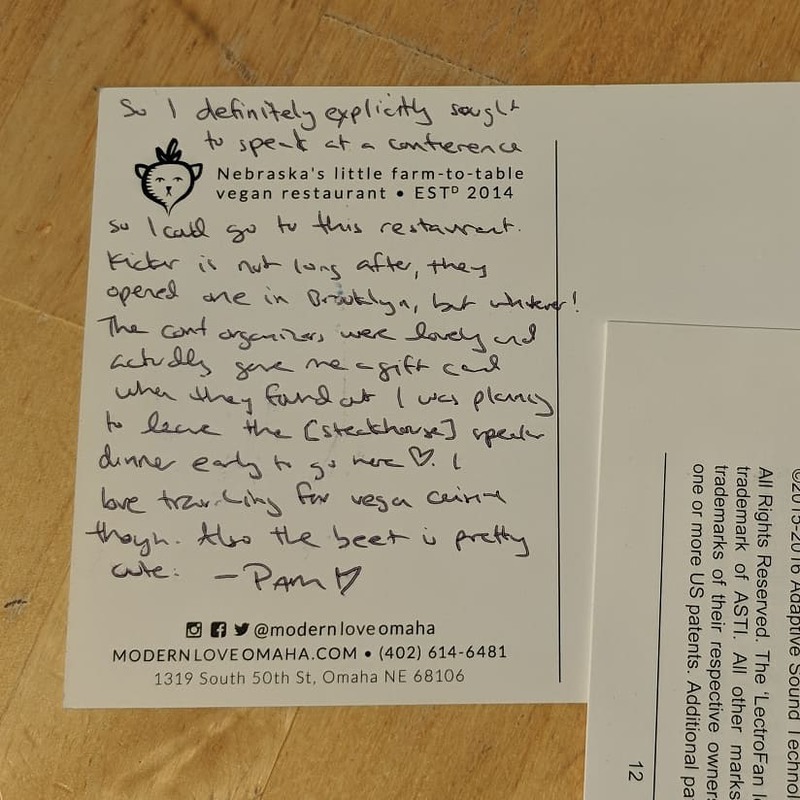 So I definitely explicitly sought
to speak at a conference
Nebraska's little farm-to-table
vegan restaurant • ESTD 2014
so I could go to this restaurant.
Kicker is not long after, they
opened one in Brooklyn, but whatever!
The conf organizers were lovely and
actually gave me a gift card
when they found out I was planning
to leave the [steakhouse] speaker
dinner early to go here ♡. I
love travelling for vegan cuisine
though. Also the beet is pretty
cute. – PAM ♡
@modernloveomaha
MODERNLOVEOMAHA.COM • (402) 614-6481
1319 South 50th St, Omaha NE 68106
©2015-2016 Adaptive Sound Technol
All Rights Reserved. The 'LectroFan l
trademark of ASTI. All other marks
trademarks of their respective owner
one or more US patents. Additional pa
12